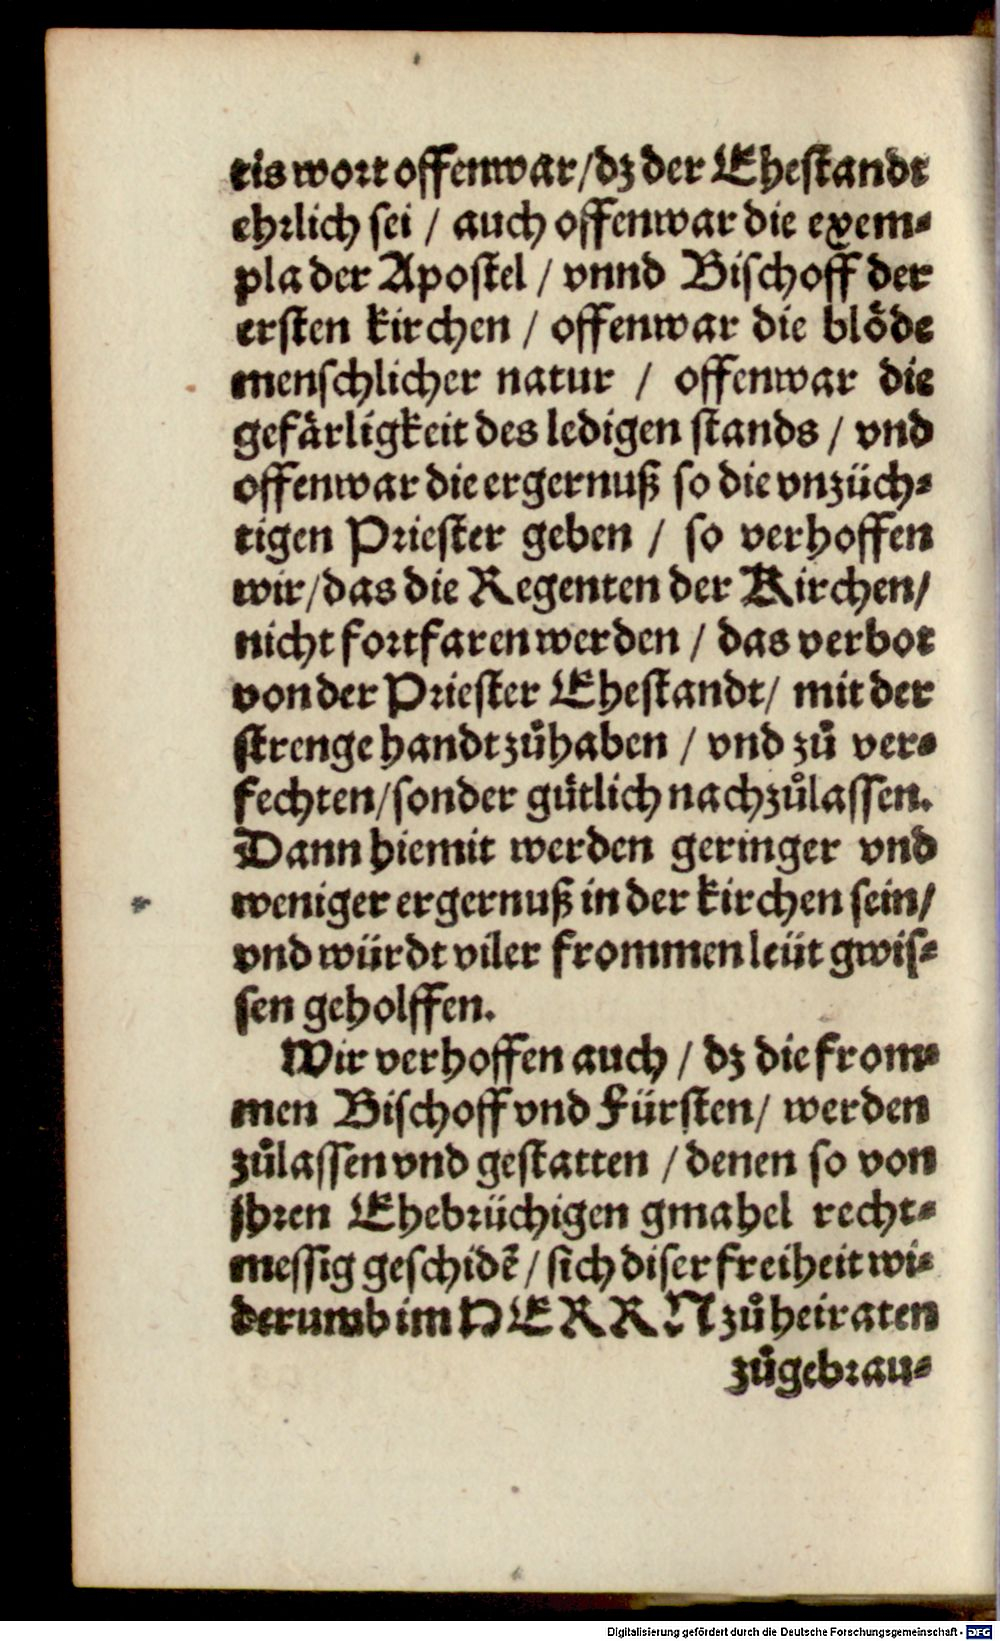 tis wort offenwar/dz der Ehestandt
ehrlich sei / auch offenwar die exem⸗
pla der Apostel / vnnd Bischoff der
ersten kirchen / offenwar die blöde
menschlicher natur / offenwar die
gefärligkeit des ledigen stands / vnd
offenwar die ergernuß so die vnzüch⸗
tigen Priester geben / so verhoffen
wir/das die Regenten der Kirchen/
nicht fortfaren werden / das verbot
von der Priester Ehestandt/ mit der
strenge handtzůhaben / vnd zů ver⸗
fechten/sonder gütlich nachzůlassen.
Dann hiemit werden geringer vnd
weniger ergernuß in der kirchen sein/
vnd würdt viler frommen leüt gwis⸗
sen geholffen.
Wir verhoffen auch / dz die from⸗
men Bischoff vnd Fürsten/ werden
zůlassen vnd gestatten / denen so von
jhren Ehebrüchigen gmahel recht⸗
messig geschidẽ / sich diser freiheit wi⸗
derumb im HERRN zů heiraten
zůgebrau⸗
Digitalisierung gefördert durch die Deutsche Forschungsgemeinschaft - DFG